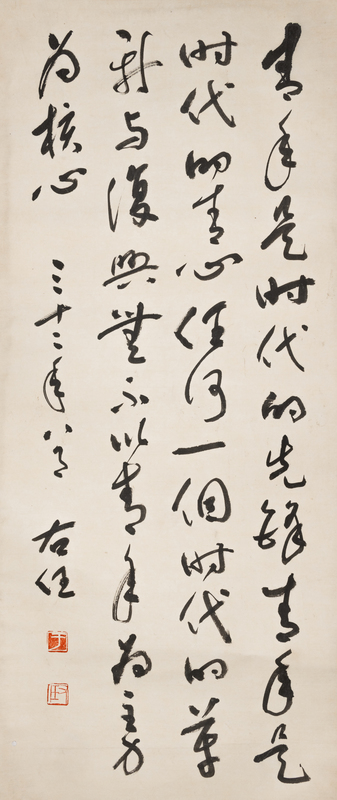 青年是时代的先鋒青年是
时代的重心任何一個时代的革
新与復興無不以青年为主力
为核心 三十二年八月 右任
于